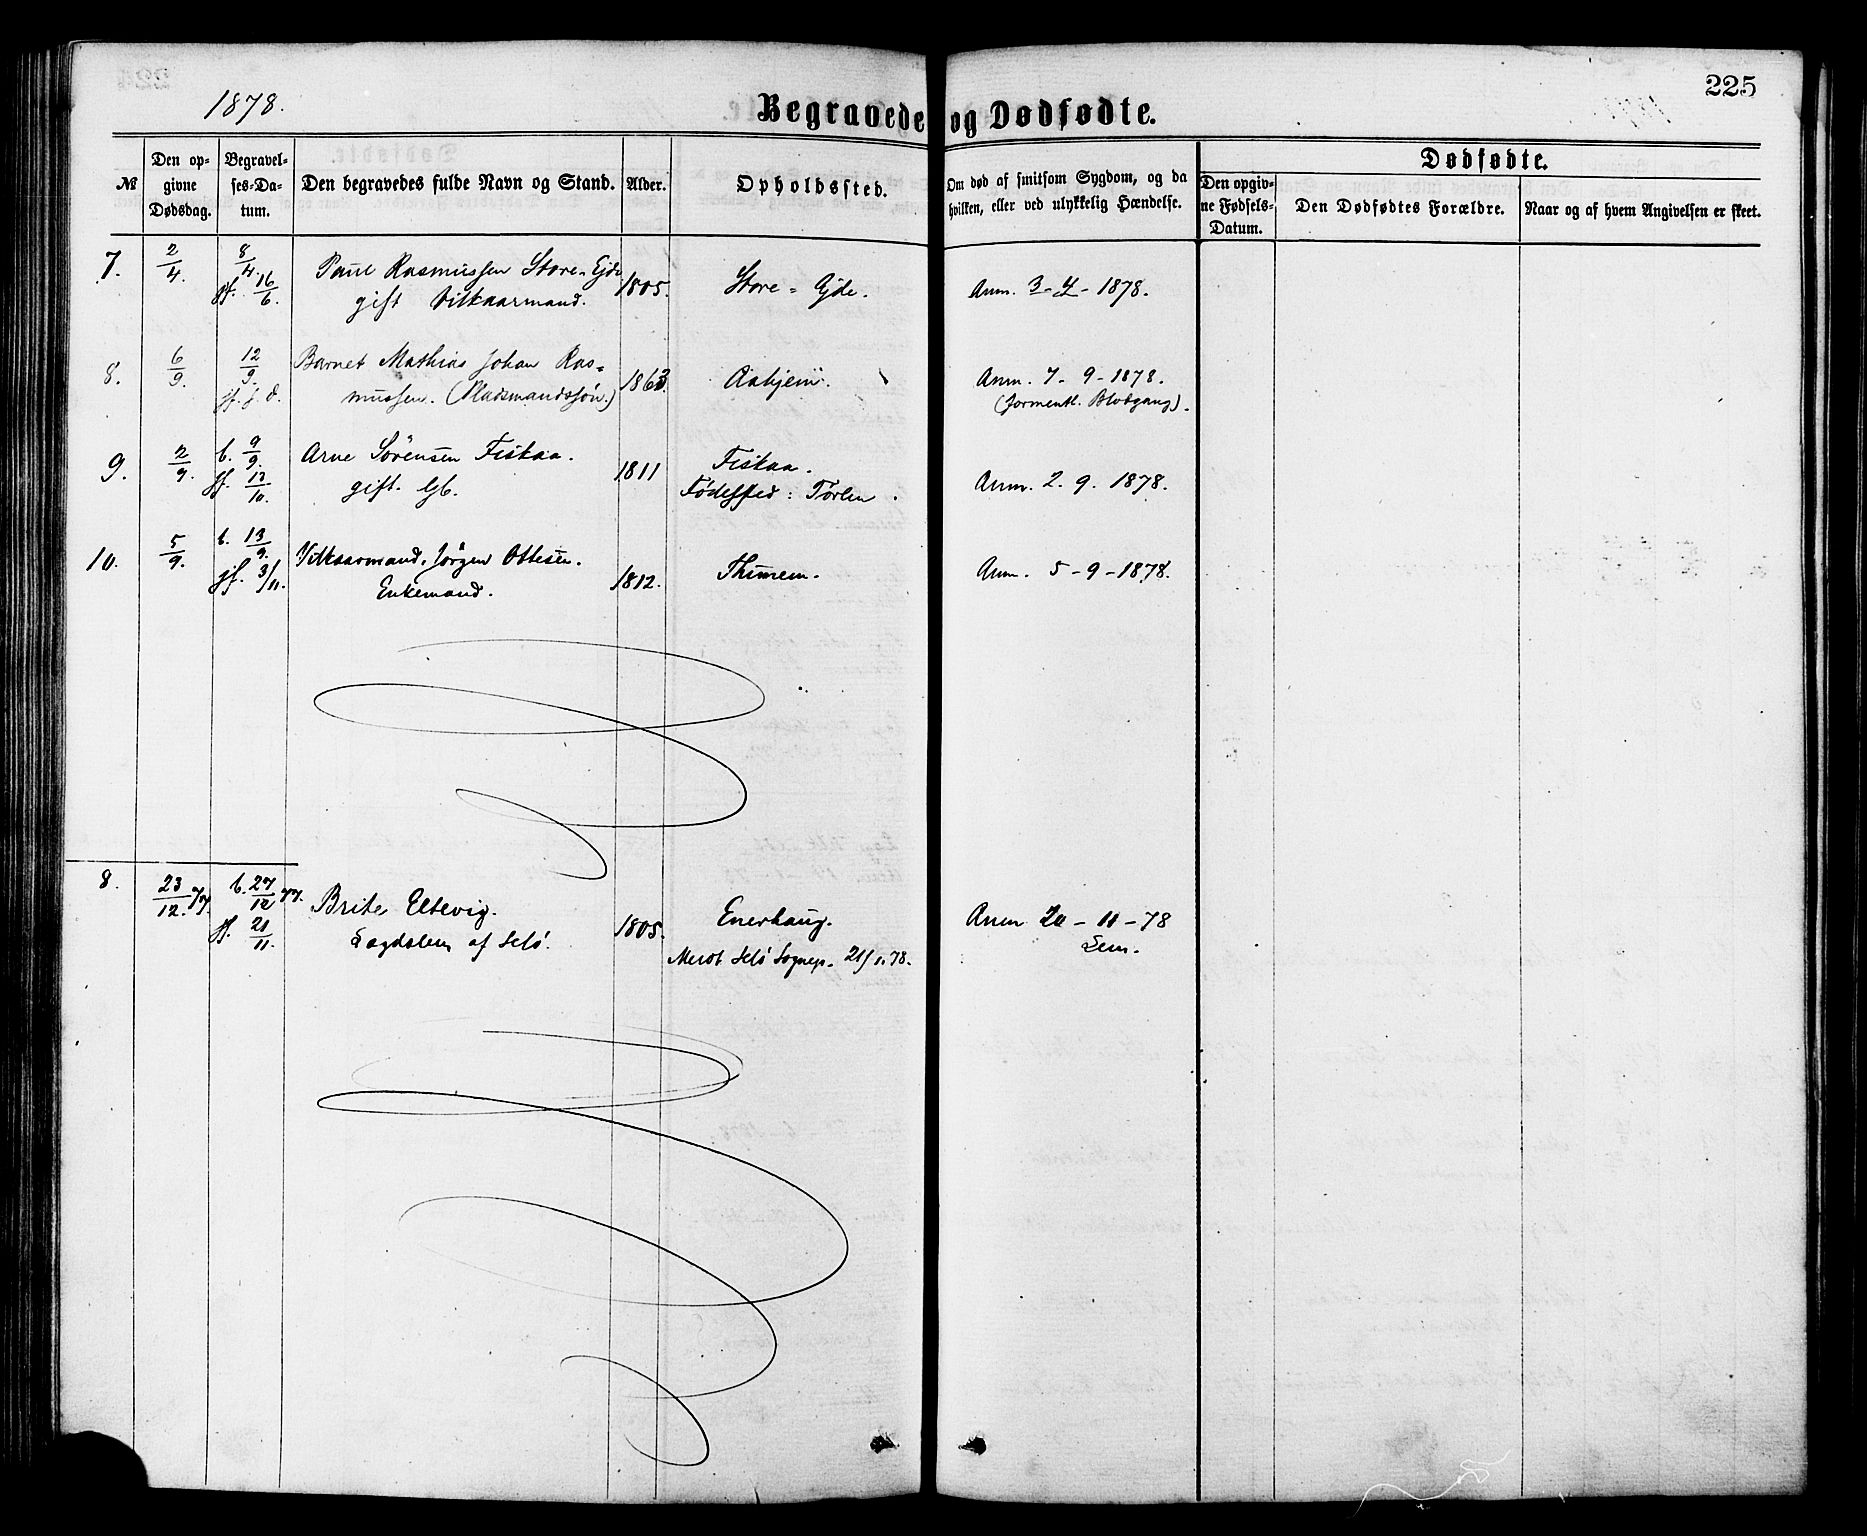 1878.
Begravede og Dødfødte.
225
№
Den op-
givne
Dødsdag.
Begravel-
ses-Da-
tum.
Den begravedes fulde Navn og Stand.
Alder.
Opholdssted.
Om død af smitsom Sygdom, og da
hvilken, eller ved ulykkelig Hændelse.
Dødfødte.
Den opgiv-
ne Fødsels-
Datum.
Den Dødfødtes Forældre.
Naar og af hvem Angivelsen er skeet.
7.
2/4.
8/4.
jf. 16/6.
Paul Rasmussen Store-Ejde
gift Vilkaarmand.
1805.
Store-Ejde.
Anm. 3-4-1878.
8.
6/9.
12/9.
jf. s. d.
Barnet Mathias Johan Ras-
mussen. (Pladsmandssøn.)
1863.
Aahjem.
Anm. 7-9-1878.
(formentl. Blodgang).
9.
2/9.
b. 9/9.
jf. 13/10.
Arne Sørensen Fiskaa.
gift. Gb.
1811
Fiskaa.
Fødested:
Anm. 2. 9. 1878.
10.
5/9.
b. 13/9.
jf. 3/11.
Vilkaarmand, Jørgen Ottesen.
Enkemand.
1812.
Thunem.
Anm. 5-9-1878.
8.
23/12. 77.
b. 27/12 77.
jf. 21/11.
Brite Eltevig.
Lægdslem af Selø.
1805.
Enerhaug.
Selø Sognep. 21/ 78.
Anm - 11 - 78
Lem.